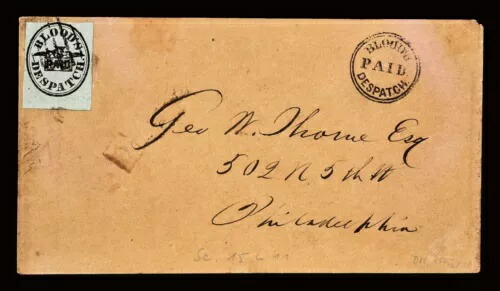 BLOOD'S
PAID
DESPATCH.
BLOOD'S
PAID
DESPATCH
Geo W. Thorne Esq
502 N 5th St
Philadelphia
Sc. 15 L 11